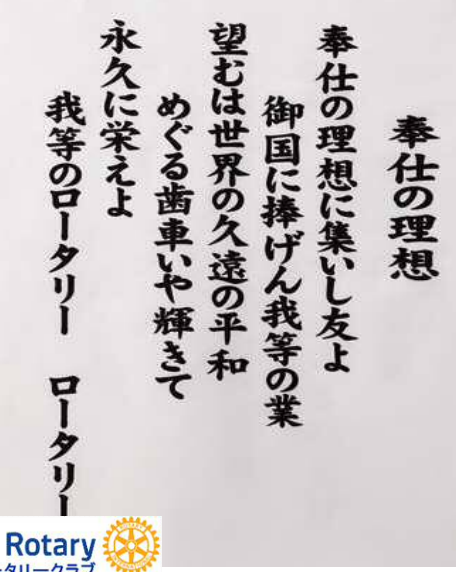 奉仕の理想
奉仕の理想に集いし友よ
御国に捧げん我等の業
望むは世界の久遠の平和
めぐる歯車いや輝きて
永久に栄えよ
我等のロータリー　ロータリー
Rotary
ータリークラブ